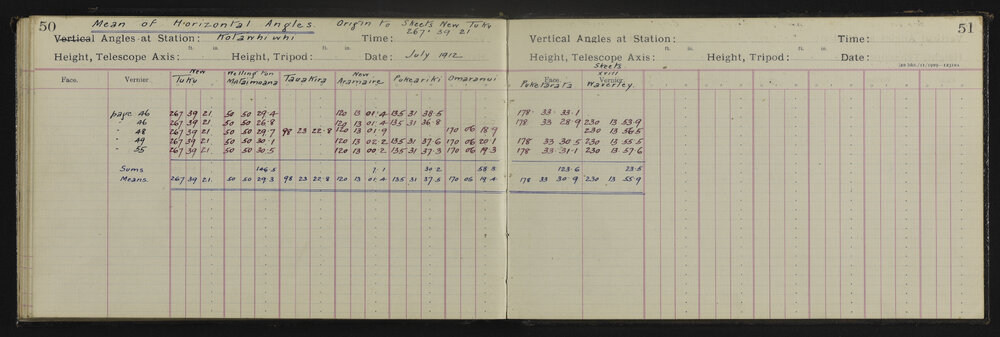 50 Mean of Horizontal Angles. Origin to Sheets New Tuku
267° 39 21
Vertical Angles at Station: Kotawhiwhi Time:
ft. in. ft. in.
Height, Telescope Axis: Height, Tripod: Date: July 1912
Face. Vernier. New Tuku Welling ton Mataimoana Tauakira New Aramaire Pukeariki Omaranui
page 46 267 39 21 50 50 29.4 120 13 01.4 135 31 38.5
" 46 267 39 21 50 50 26.8 120 13 01.4 135 31 36.8
" 48 267 39 21 50 50 29.7 98 23 22.8 120 13 01.9 170 06 18.9
" 49 267 39 21 50 50 30.1 120 13 02.2 135 31 37.6 170 06 20.1
" 55 267 39 21 50 50 30.5 120 13 00.2 135 31 37.3 170 06 19.3
Sums 146.5 7.1 30.2 58.3
Means. 267 39 21 50 50 29.3 98 23 22.8 120 13 01.4 135 31 37.5 170 06 19.4
51
Vertical Angles at Station: Time:
ft. in. ft. in.
Height, Telescope Axis: Height, Tripod: Date:
Face. Puketarata Sheets XVIII Vernier. Waverley.
178 33 33.1
178 33 28.9 230 13 53.9
230 13 56.5
178 33 30.5 230 13 55.5
178 33 31.1 230 13 57.6
123.6 23.5
178 33 30.9 230 13 55.9